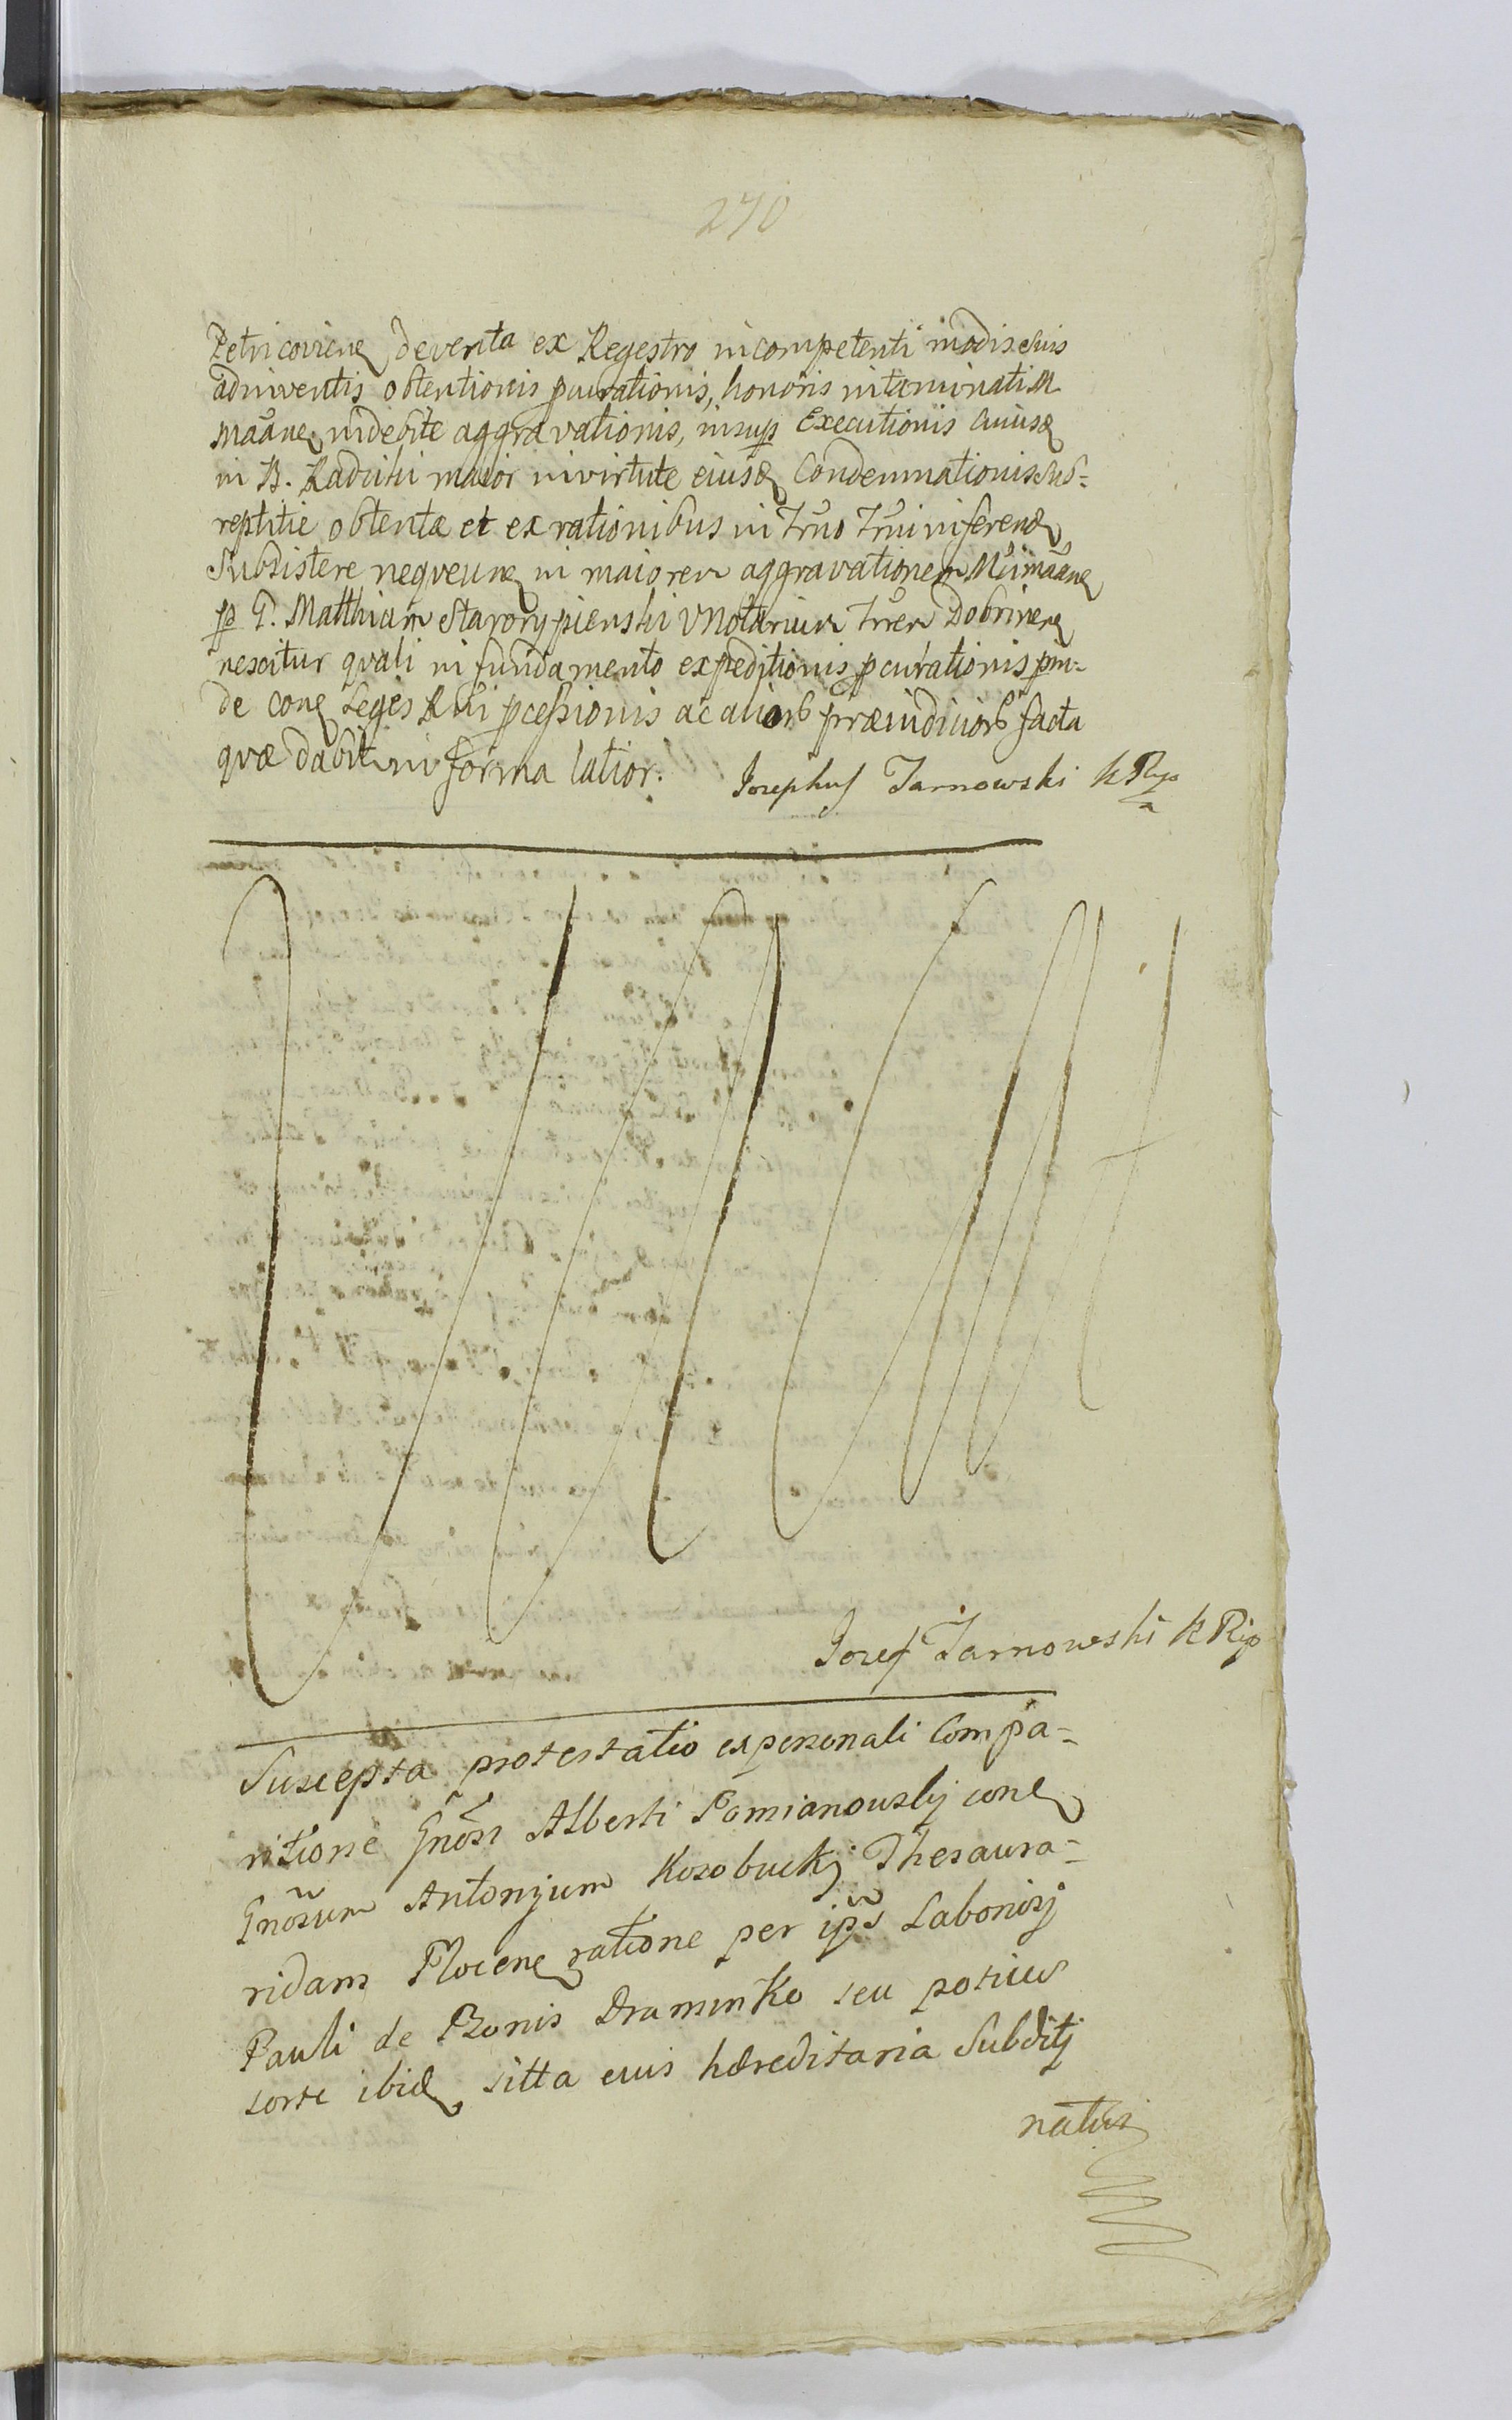 270
Petricovien deverita ex Regestro incompetenti modis suis
adinventis obtentionis pcurationis, honoris intaminati M
Maãne indebite aggravationis, insup Executionis cuiusd
in B. Raduthi maior in virtute eiusd Condemnationis sub-
reptitie obtentæ et ex rationibus in Trno Trni inferend
Subsistere nequeun in maiorem aggravationem
p G. Matthiam Starorypienski VNotarium Trrem Dobrinen
nescitur quali in fundamento expeditionis pcurationis
de con Leges pcessionis ac alior præiudicior facta
quæ dabit in forma latior. Josephus Jarnowski
Jozef Jarnowski
Suscepta protestatio ex personali Compa-
ritione Gnosi Alberti Pomianowskij con
Gnosum Antonium Kosobuckj Thesaura-
ridam Plocen ratione per ips Laboriosj
Pauli de Bonis Draminko seu potius
sorte ibid sitta eius hæreditaria Subditj